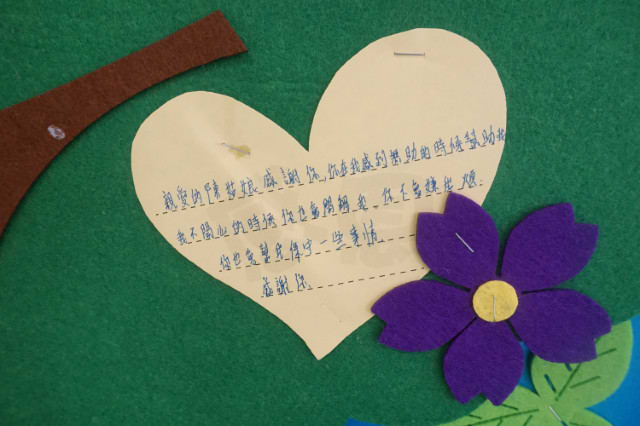 親愛的陳苡娘感謝你,你在我感到無助的時候幫助我
我不開心的時候你也會開解我,你不會嫌我煩.
你也會幫我保守一些事情
感謝你